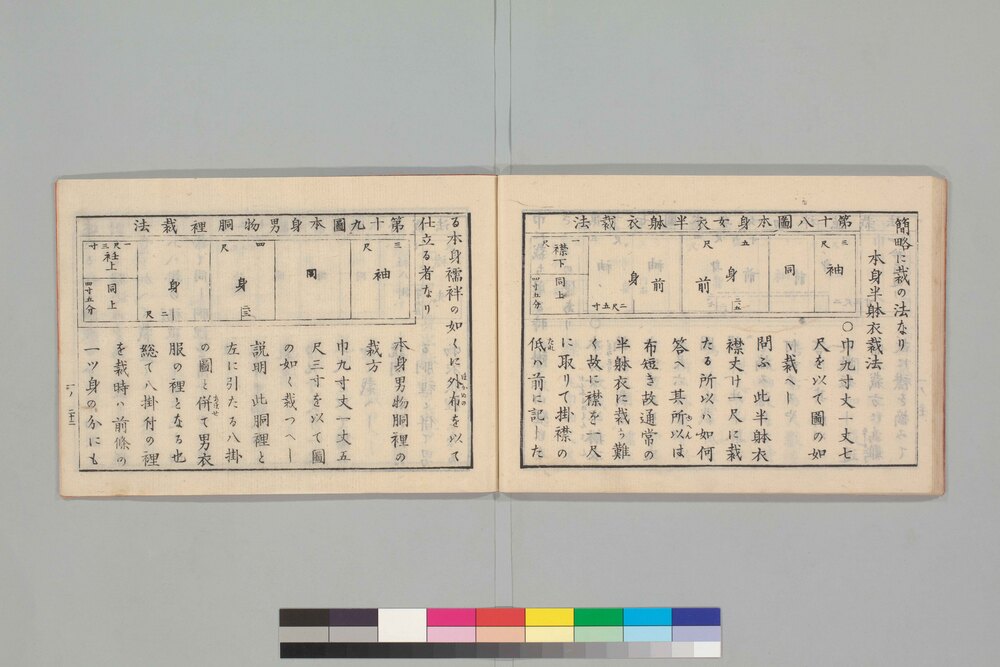 簡略に裁の法なり
本身半躰衣裁法
第十八圖本身女衣半躰衣裁法
三尺
袖
同
五尺
身
前
前
身
二尺五寸
襟下
同上
四寸五分
〇巾九寸丈一丈七
尺を以て圖の如
く裁へし
問ふ此半躰衣
襟丈け一尺に裁
たる所以ハ如何
答へ其所以は
布短き故通常の
半躰衣に裁う難
く故に襟を一尺
に取りて掛襟の
低ハ前に記した
る本身襦袢の如くに外布を以て
仕立る者なり
第十九圖本身男物胴裡裁法
三尺
袖
同
四尺
身
身
二尺
一尺三寸
衽上
同上
四寸五分
本身男物胴裡の
裁方
巾九寸丈一丈五
尺三寸を以て圖
の如く裁つへし
説明 此胴裡と
左に引たる八掛
の圖と併て男衣
服の裡となる也
總て八掛付の裡
を裁時ハ前條の
一ツ身の分にも